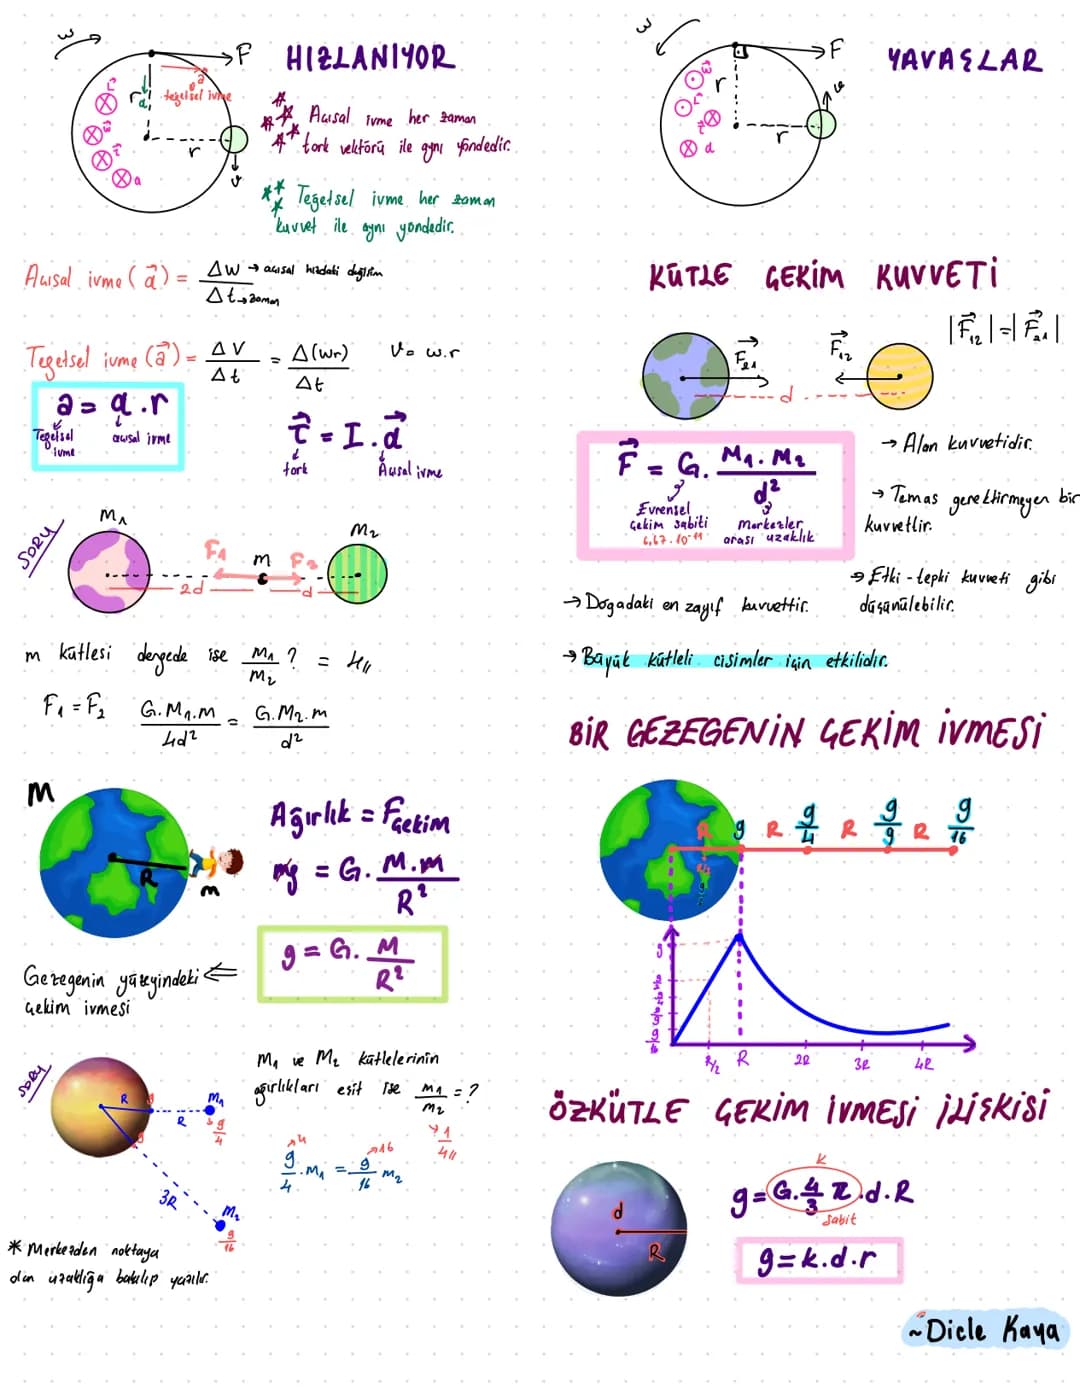 ω
F
HIZLANIYOR
r
a
teğetsel ivme
r
ω
τ
α
r
v
Açısal ivme her zaman
tork vektörü ile aynı yöndedir.
Teğetsel ivme her zaman
kuvvet ile aynı yöndedir.
ω
F
YAVAŞLAR
ω
r
r
τ
α
r
v
Açısal ivme (α⃗) = Δw → açısal hızdaki değişim
Δt → zaman
Teğetsel ivme (a⃗) = ΔV / Δt = Δ(wr) / Δt
V = w.r
a = α.r
Teğetsel ivme
açısal ivme
τ⃗ = I.α⃗
tork
Açısal ivme
SORU
M1
F1
m
F2
M2
2d
d
m kütlesi dengede ise M1 / M2 ? = 4//
F1 = F2
G.M1.m / 4d² = G.M2.m / d²
M
R
m
Ağırlık = Fçekim
mg = G. M.m / R²
g = G. M / R²
Gezegenin yüzeyindeki ⇐
çekim ivmesi
SORU
R
g
R
M1
g/4
g
3R
M2
g/16
M1 ve M2 kütlelerinin
ağırlıkları eşit ise M1 / M2 = ?
1/4//
4
16
g/4 .M1 = g/16 M2
* Merkezden noktaya
olan uzaklığa bakılıp yazılır.
KÜTLE ÇEKİM KUVVETİ
|F⃗12| = |F⃗21|
F⃗21
F⃗12
d
F⃗ = G. M1.M2 / d²
Evrensel
çekim sabiti
6,67.10⁻¹¹
Merkezler
arası uzaklık
→ Alan kuvvetidir.
→ Temas gerektirmeyen bir
kuvvettir.
→ Etki-tepki kuvveti gibi
düşünülebilir.
→ Doğadaki en zayıf kuvvettir.
→ Büyük kütleli cisimler için etkilidir.
BİR GEZEGENİN ÇEKİM İVMESİ
R g R g/4 R g/9 R g/16
g
R/2 R 2R 3R 4R
ÖZKÜTLE ÇEKİM İVMESİ İLİŞKİSİ
d
R
K
g = G.4/3 π.d.R
sabit
g = k.d.r
~Dicle Kaya